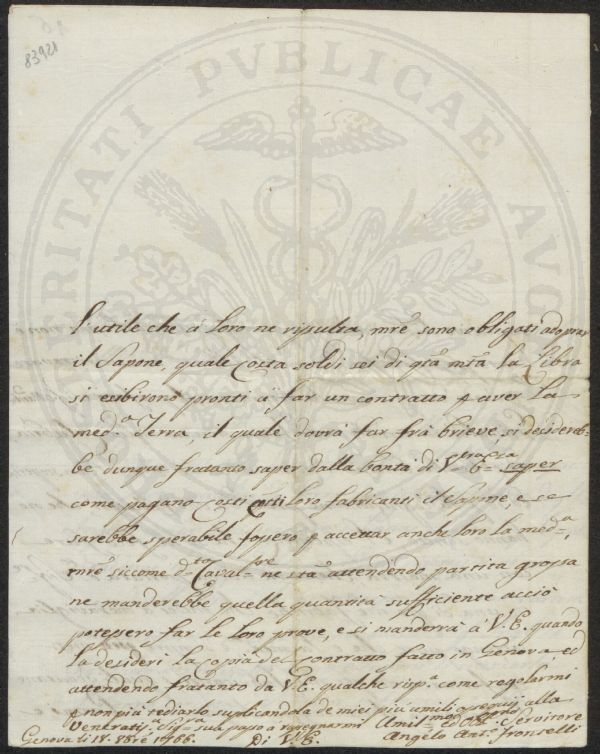 83921
VERITATI PVBLICAE AVG
l'utile che á loro ne risulta, mrē sono obligati adoprar
il Sapone, quale costa soldi sei di qtā mtā la Libra
si esibirono pronti á far un contratto p aver la
med.ª Terra, il quale dovrá far frá brieve, si decidereb-
be dunque fratanto saper dalla bontá di V-
saper
come pagano costi loro fabricanti il Sapone, e se
sarebbe sperabile fossero p accettar anche loro la med.ª,
mrē siccome d.to Caval.re ne stá attendendo partita grossa
ne manderebbe quella quantitá sufficiente acció
potessero far le loro prove, e si manderrá á V.E. quando
la desideri la Copia del Contratto fatto in Genova ed
attendendo fratanto da V.E. qualche risp.ª come regolarmi
p non piú tediarlo suplicandola de miei piú umili ossequij alla
Sig.ra sua passo a rasegnarmi
Di V.E.
Umil.mo ed Obb. Servitore
Genova li 18. 1766.
Angelo Ant.o